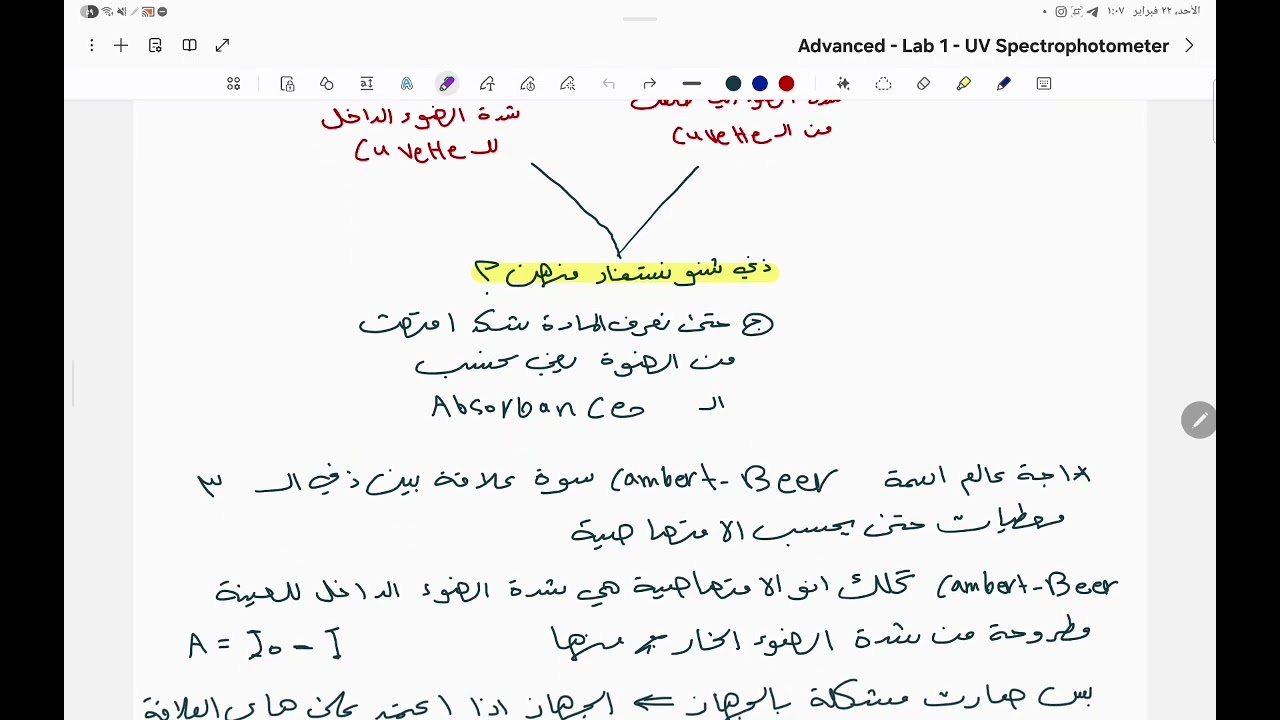 الأحد، ٢٢ فبراير ١:٠٧
Advanced - Lab 1 - UV Spectrophotometer
شدة الضوء الداخل
للـ Cuvette
من الـ Cuvette
ذني شنو نستفاد منهن ؟
ج حتى نعرف المادة شكد امتصت
من الضوة يعني نحسب
الـ Absorbance
*اجة عالم اسمة Lambert-Beer سوة علاقة بين ذني الـ ٣
معطيات حتى يحسب الامتصاصية
Lambert-Beer كلك انو الامتصاصية هي شدة الضوء الداخل للعينة
مطروحة من شدة الضوء الخارج منها A = I₀ - I
بس صارت مشكلة بالجهاز ⇐ الجهاز اذا اعتمد على هاي العلاقة